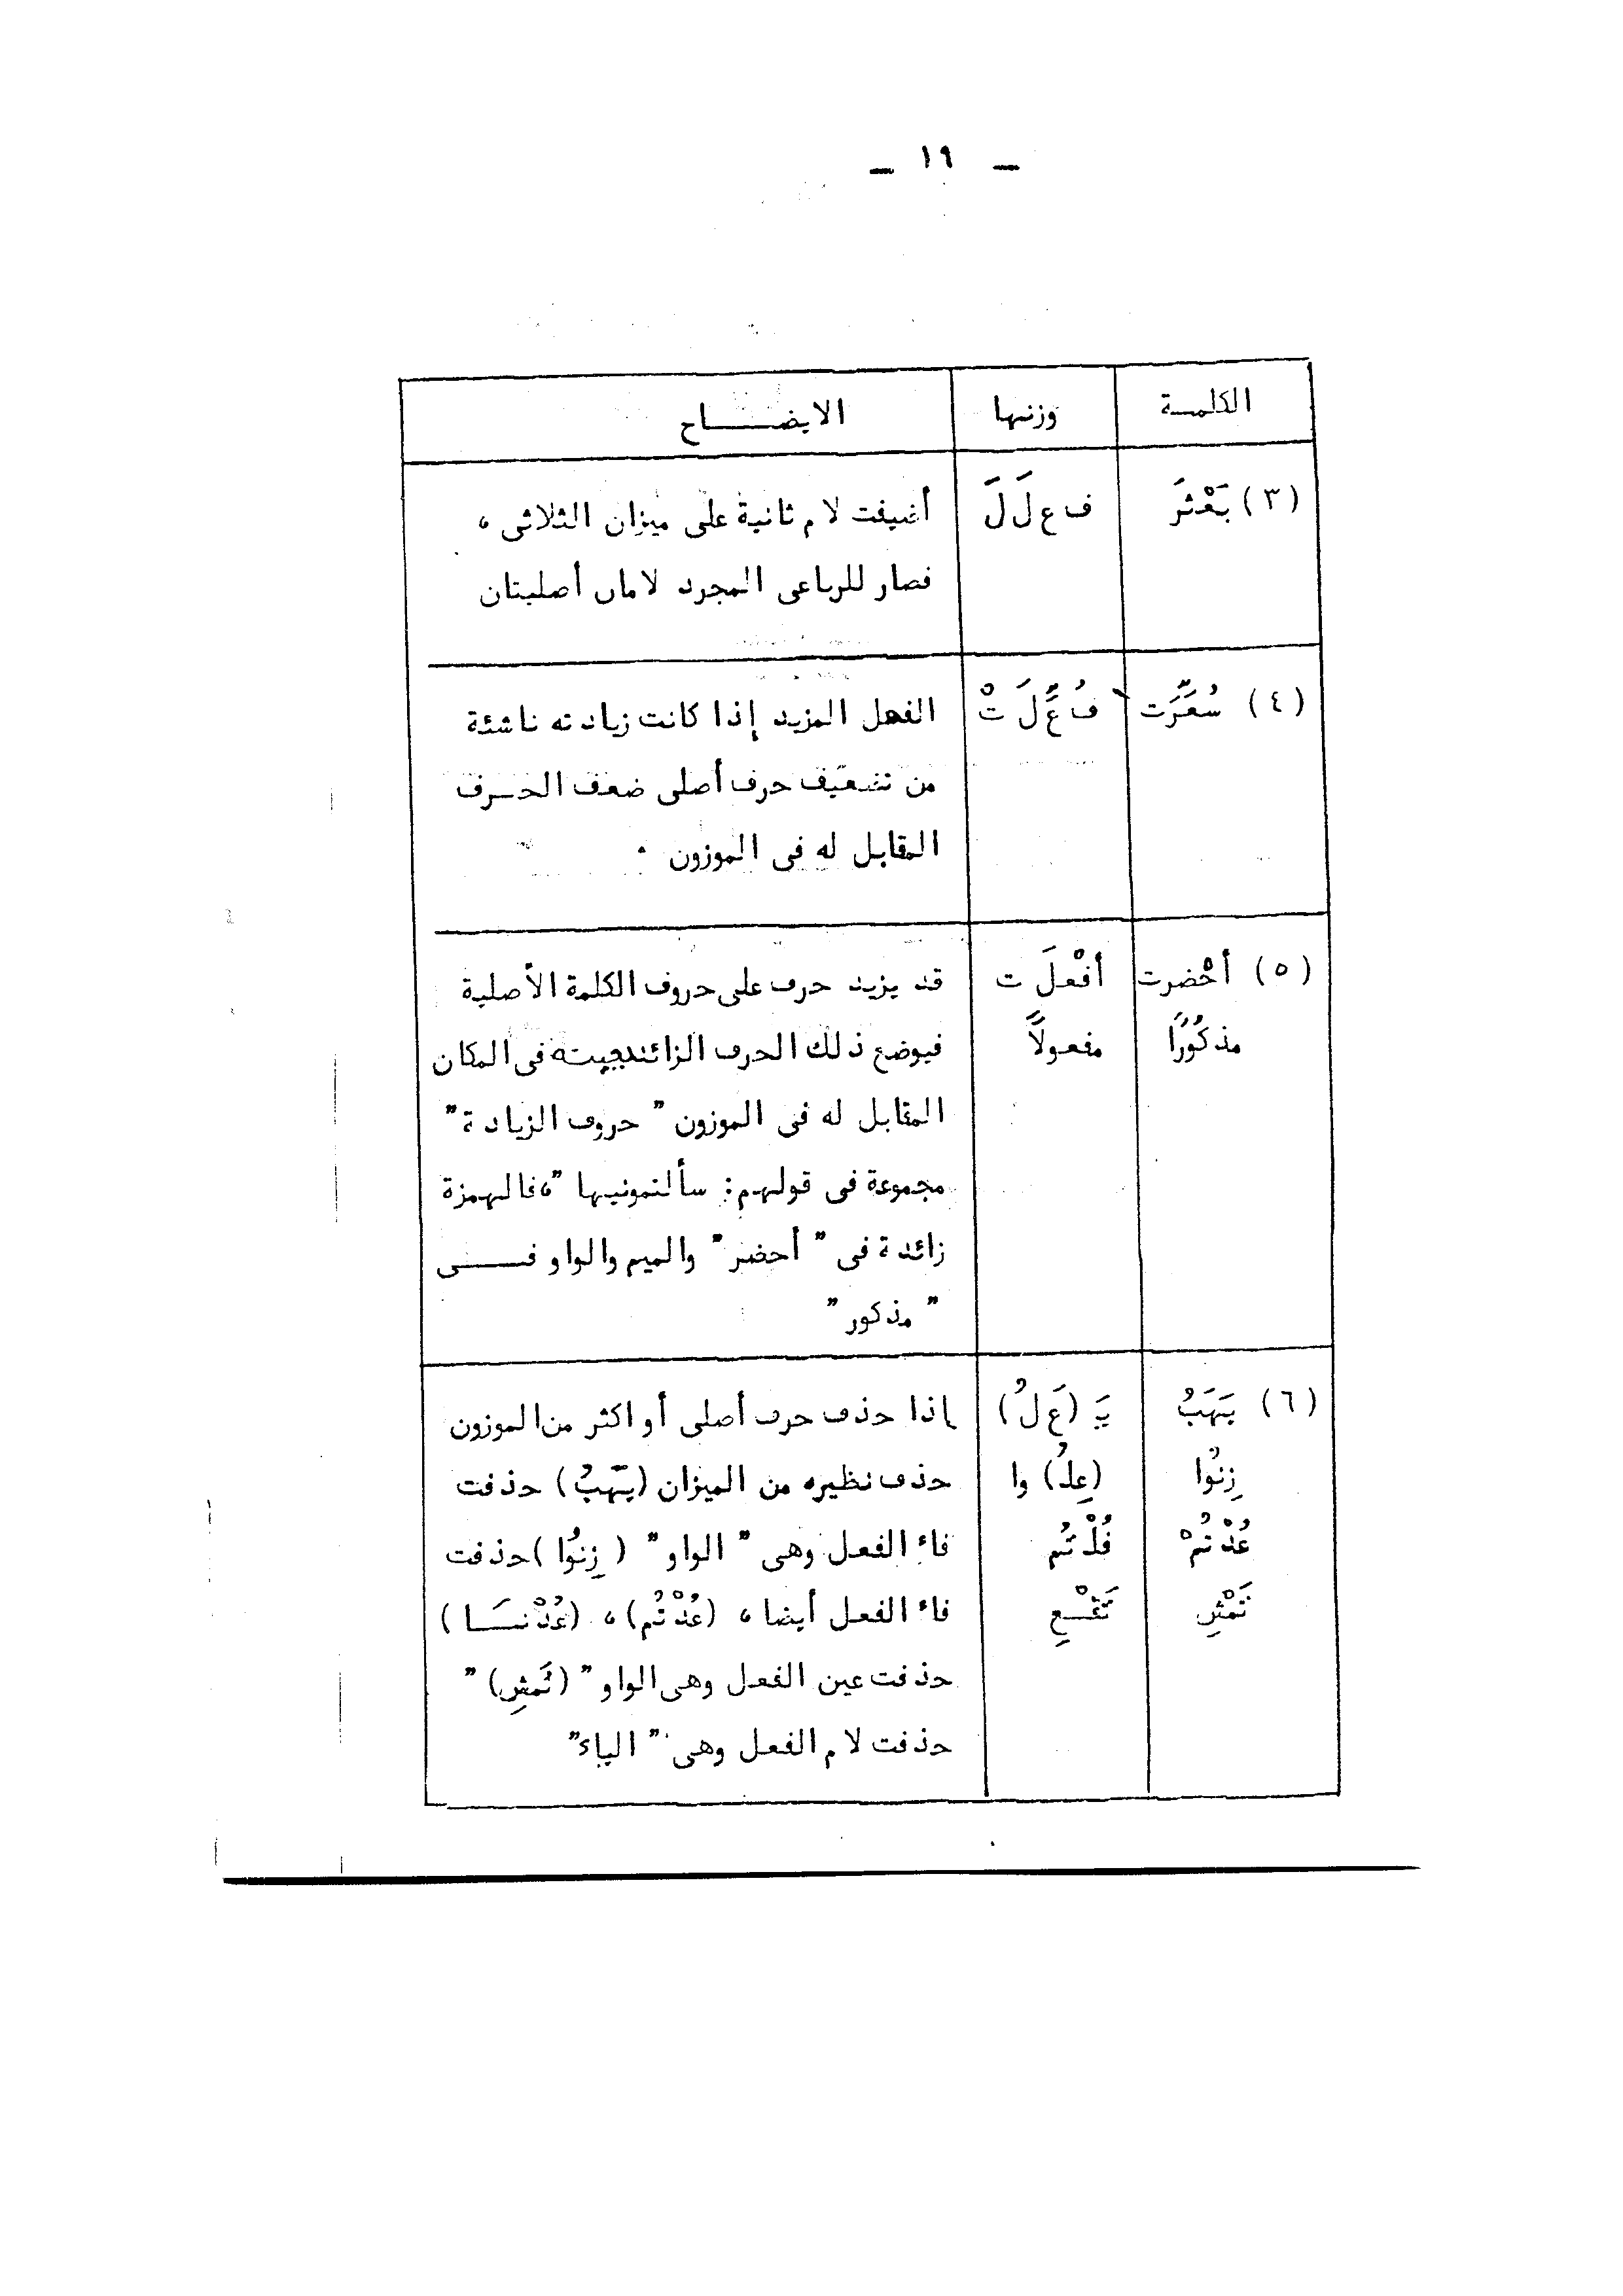 ــ ١٩ ــ
الكلمـــة وزنها الايضـــــــاح
(٣) بَعْثَرَ ف ع لَ لَ أضيفت لام ثانية على ميزان الثلاثى ،
فصار للرباعى المجرد لامان أصليتان
(٤) سُعِّرَت فُ عِّ لَ تْ الفعل المزيد إذا كانت زيادته ناشئة
من تضعيف حرف أصلى ضعف الحـــرف
المقابل له فى الموزون .
(٥) أحْضرت أفْعلَ ت قد يزيد حرف على حروف الكلمة الأصلية
مذكُورًا مفعولاً فيوضع ذلك الحرف الزائد فى المكان
المقابل له فى الموزون " حروف الزيادة "
مجموعة فى قولهم: سألتمونيها "، فالهمزة
زائدة فى " أحضر " والميم والواو فـــــــى
" مذكور "
(٦) يَهَبُ يَـ (عَ لُ) إذا حذف حرف أصلى أو اكثر من الموزون
زِنُوا (عِلُ) وا حذف نظيره من الميزان (يَهَبُ) حذفت
عُدْتُمْ فُلْتُم فاء الفعل وهى " الواو " ( زِنُوا ) حذفت
تَمْشِ تَفْـــعِ فاء الفعل أيضا ، (عُدْتُم) ، (عُدْنَـــــا )
حذفت عين الفعل وهى الواو " (تَمشِ) "
حذفت لام الفعل وهى " الياء "